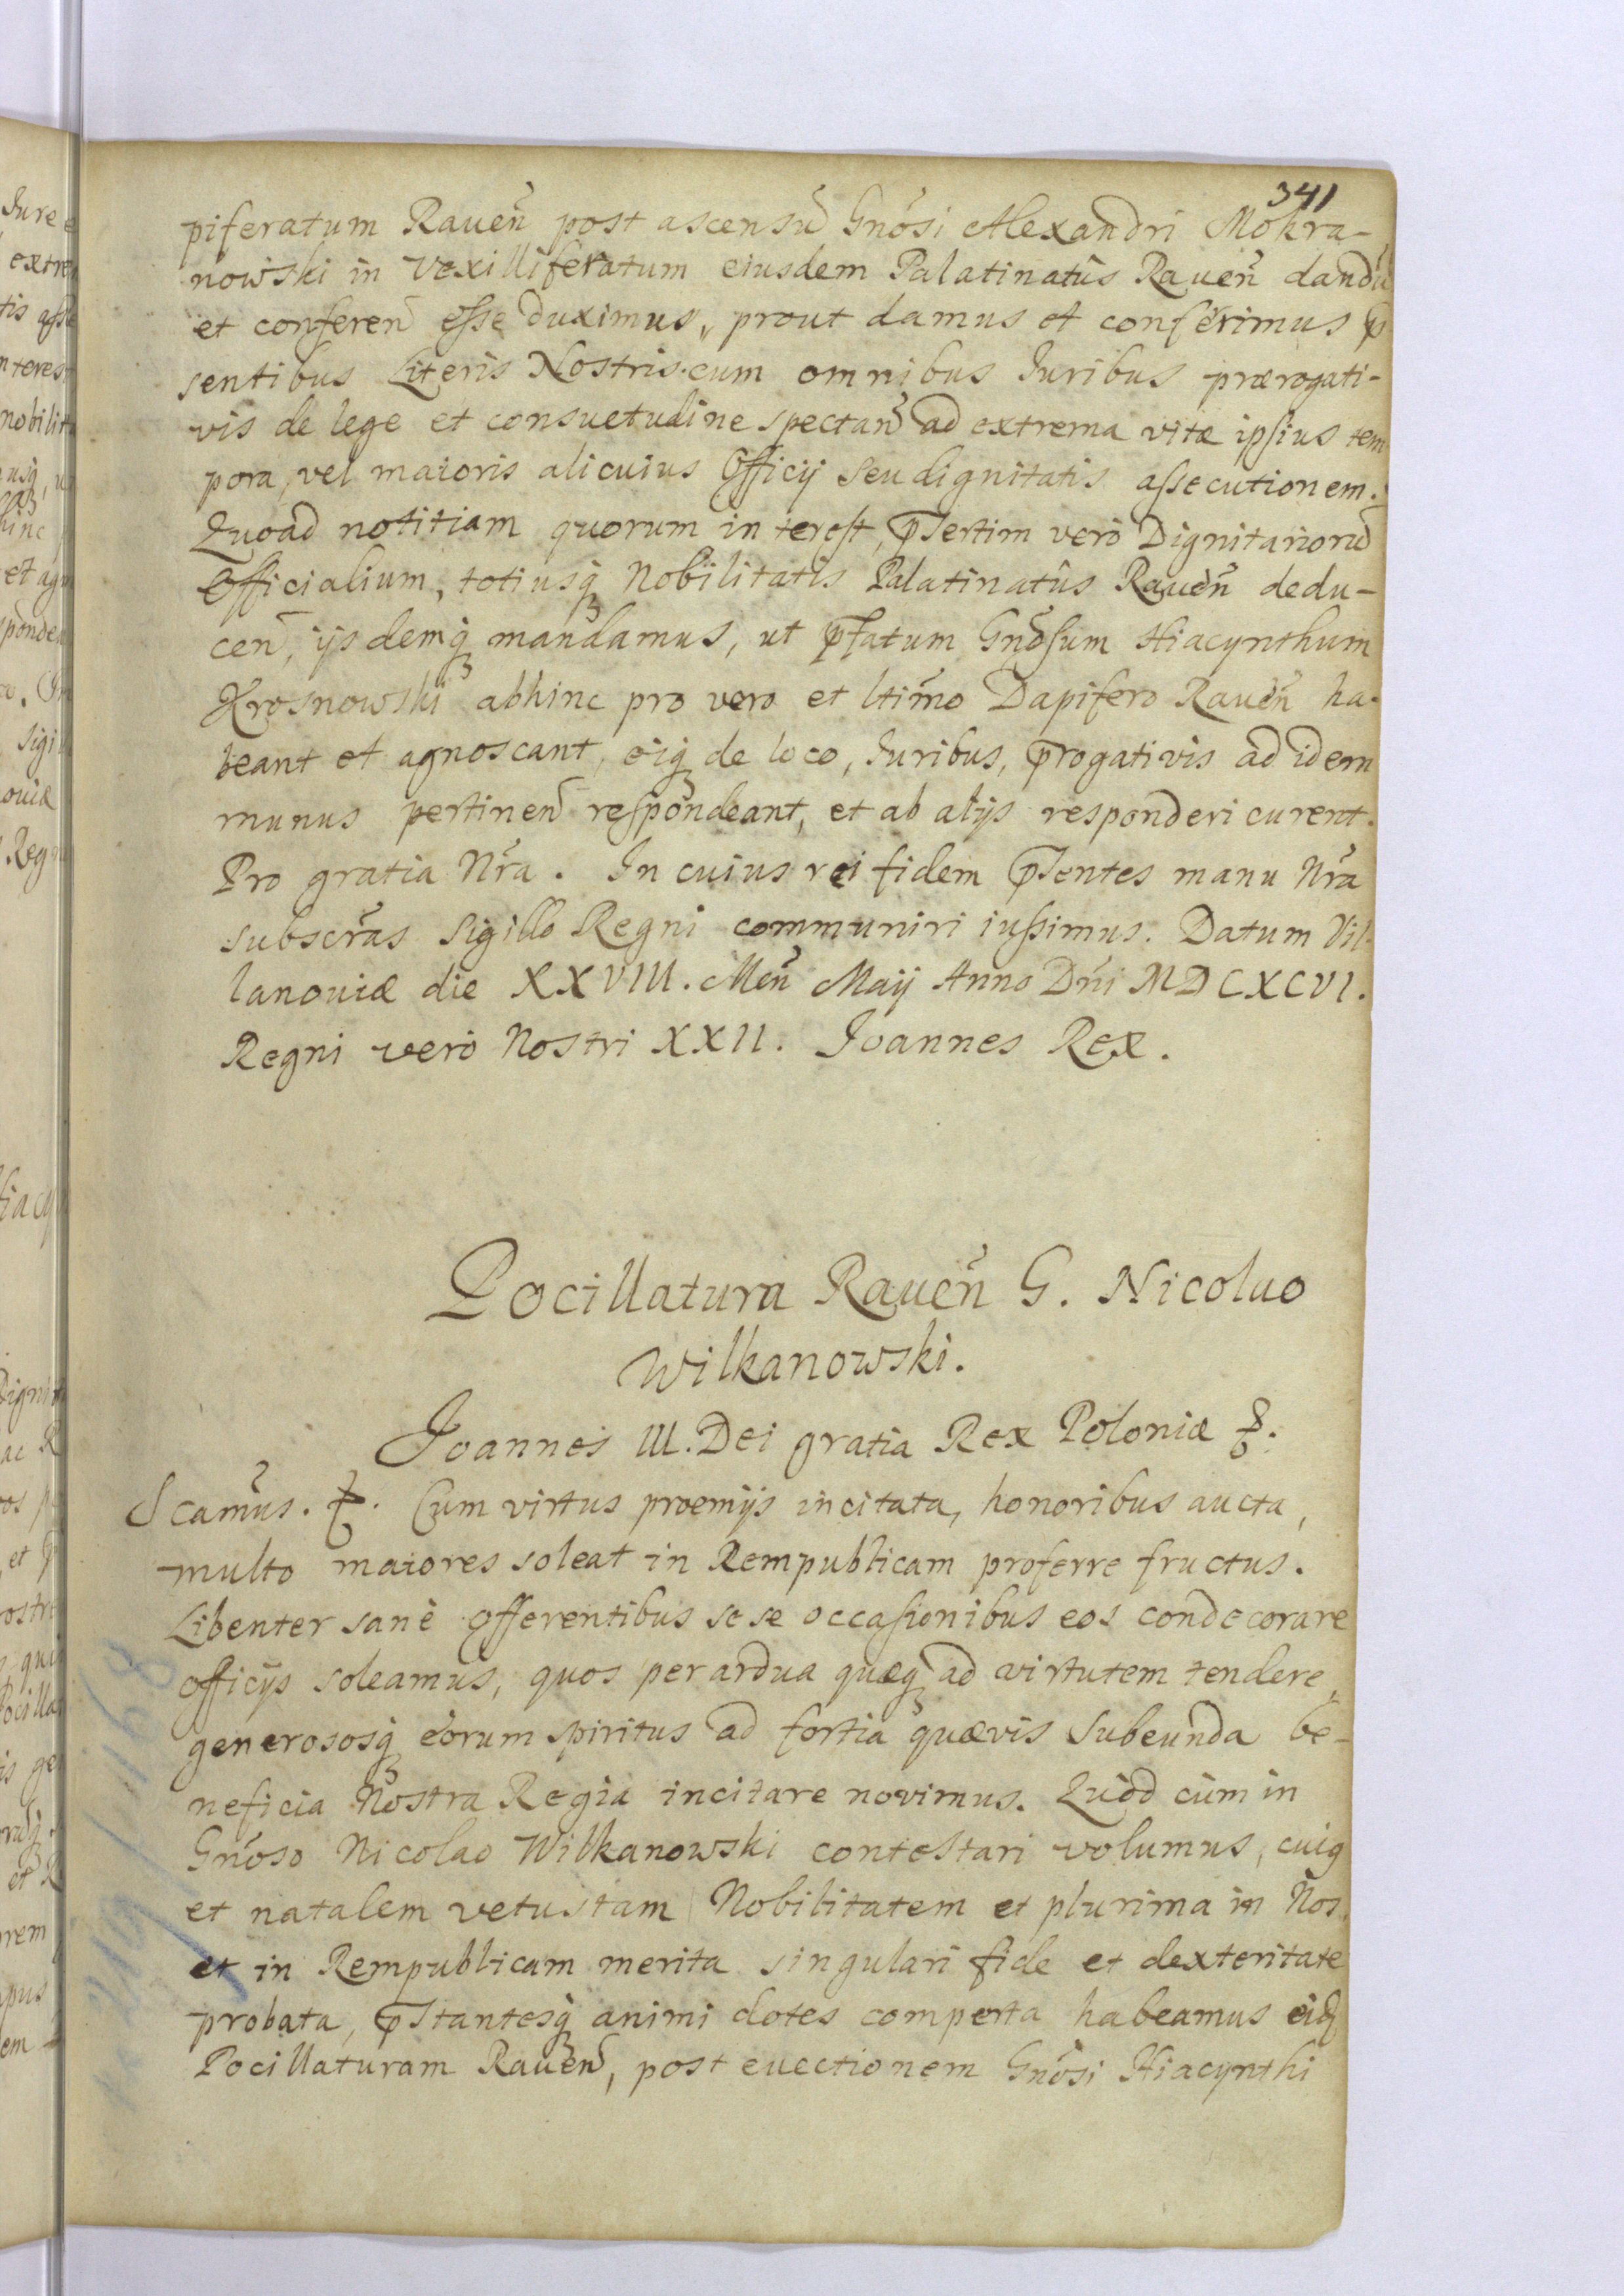 341
piferatum Raueñ post ascensū Gnõsi Alexandri Mokra-
nowski in Vexilliferatum eiusdem Palatinatûs Raueñ dandū
et conferen̄ eſse duximus, prout damus et conferimus p̄
sentibus Literis Nostris cum omnibus Iuribus prærogati-
vis de lege et consuetudine spectan̄ ad extrema vitæ ipſius tem
pora, vel maioris alicuius Officij seu dignitatis aſsecutionem.
Quoad notitiam quorum interest, p̄sertim verò Dignitariorū
Officialium, totiusq́ Nobilitatis Palatinatûs Raueñ dedu-
cen̄, ijsdemq́ mandamus, ut p̄fatum Gnõsum Hiacynthum
Krosnowski abhinc pro vero et ltimõ Dapifero Raueñ ha-
beant et agnoscant, eiq́ de loco, Iuribus, p̄rogativis ad idem
munus pertinen̄ reſpondeant, et ab alijs responderi curent.
Pro gratia Nr̃a. In cuius rei fidem p̄sentes manu Nr̃a
subscr̃as Sigillo Regni communiri iuſsimus. Datum Vil-
lanoviæ die XXVIII. Meñ Maij Anno Dñi MDCXCVI.
Regni verò Nostri XXII. Joannes Rex.
Pocillatura Raueñ G. Nicolao
Wilkanowski.
Joannes III. Dei gratia Rex Poloniæ &.
Scam̃us. &. Cum virtus proemijs incitata, honoribus aucta,
multo maiores soleat in Rempublicam proferre fructus.
Libenter sanè offerentibus sese occaſionibus eos condecorare
officijs soleamus, quos per ardua quæq́ ad virtutem tendere,
generososq́ eorum spiritus ad fortia quævis subeunda be-
neficia Nostra Regia incitare novimus. Quòd cùm in
Gnõso Nicolao Wilkanowski contestari volumus, cuiq
et natalem vetustam Nobilitatem et plurima in Nos
et in Rempublicam merita singulari fide et dexteritate
probata, p̄stantesq́ animi dotes comperta habeamus eiq́
Pocillaturam Raueñ, post euectionem Gnõsi Hiacynthi